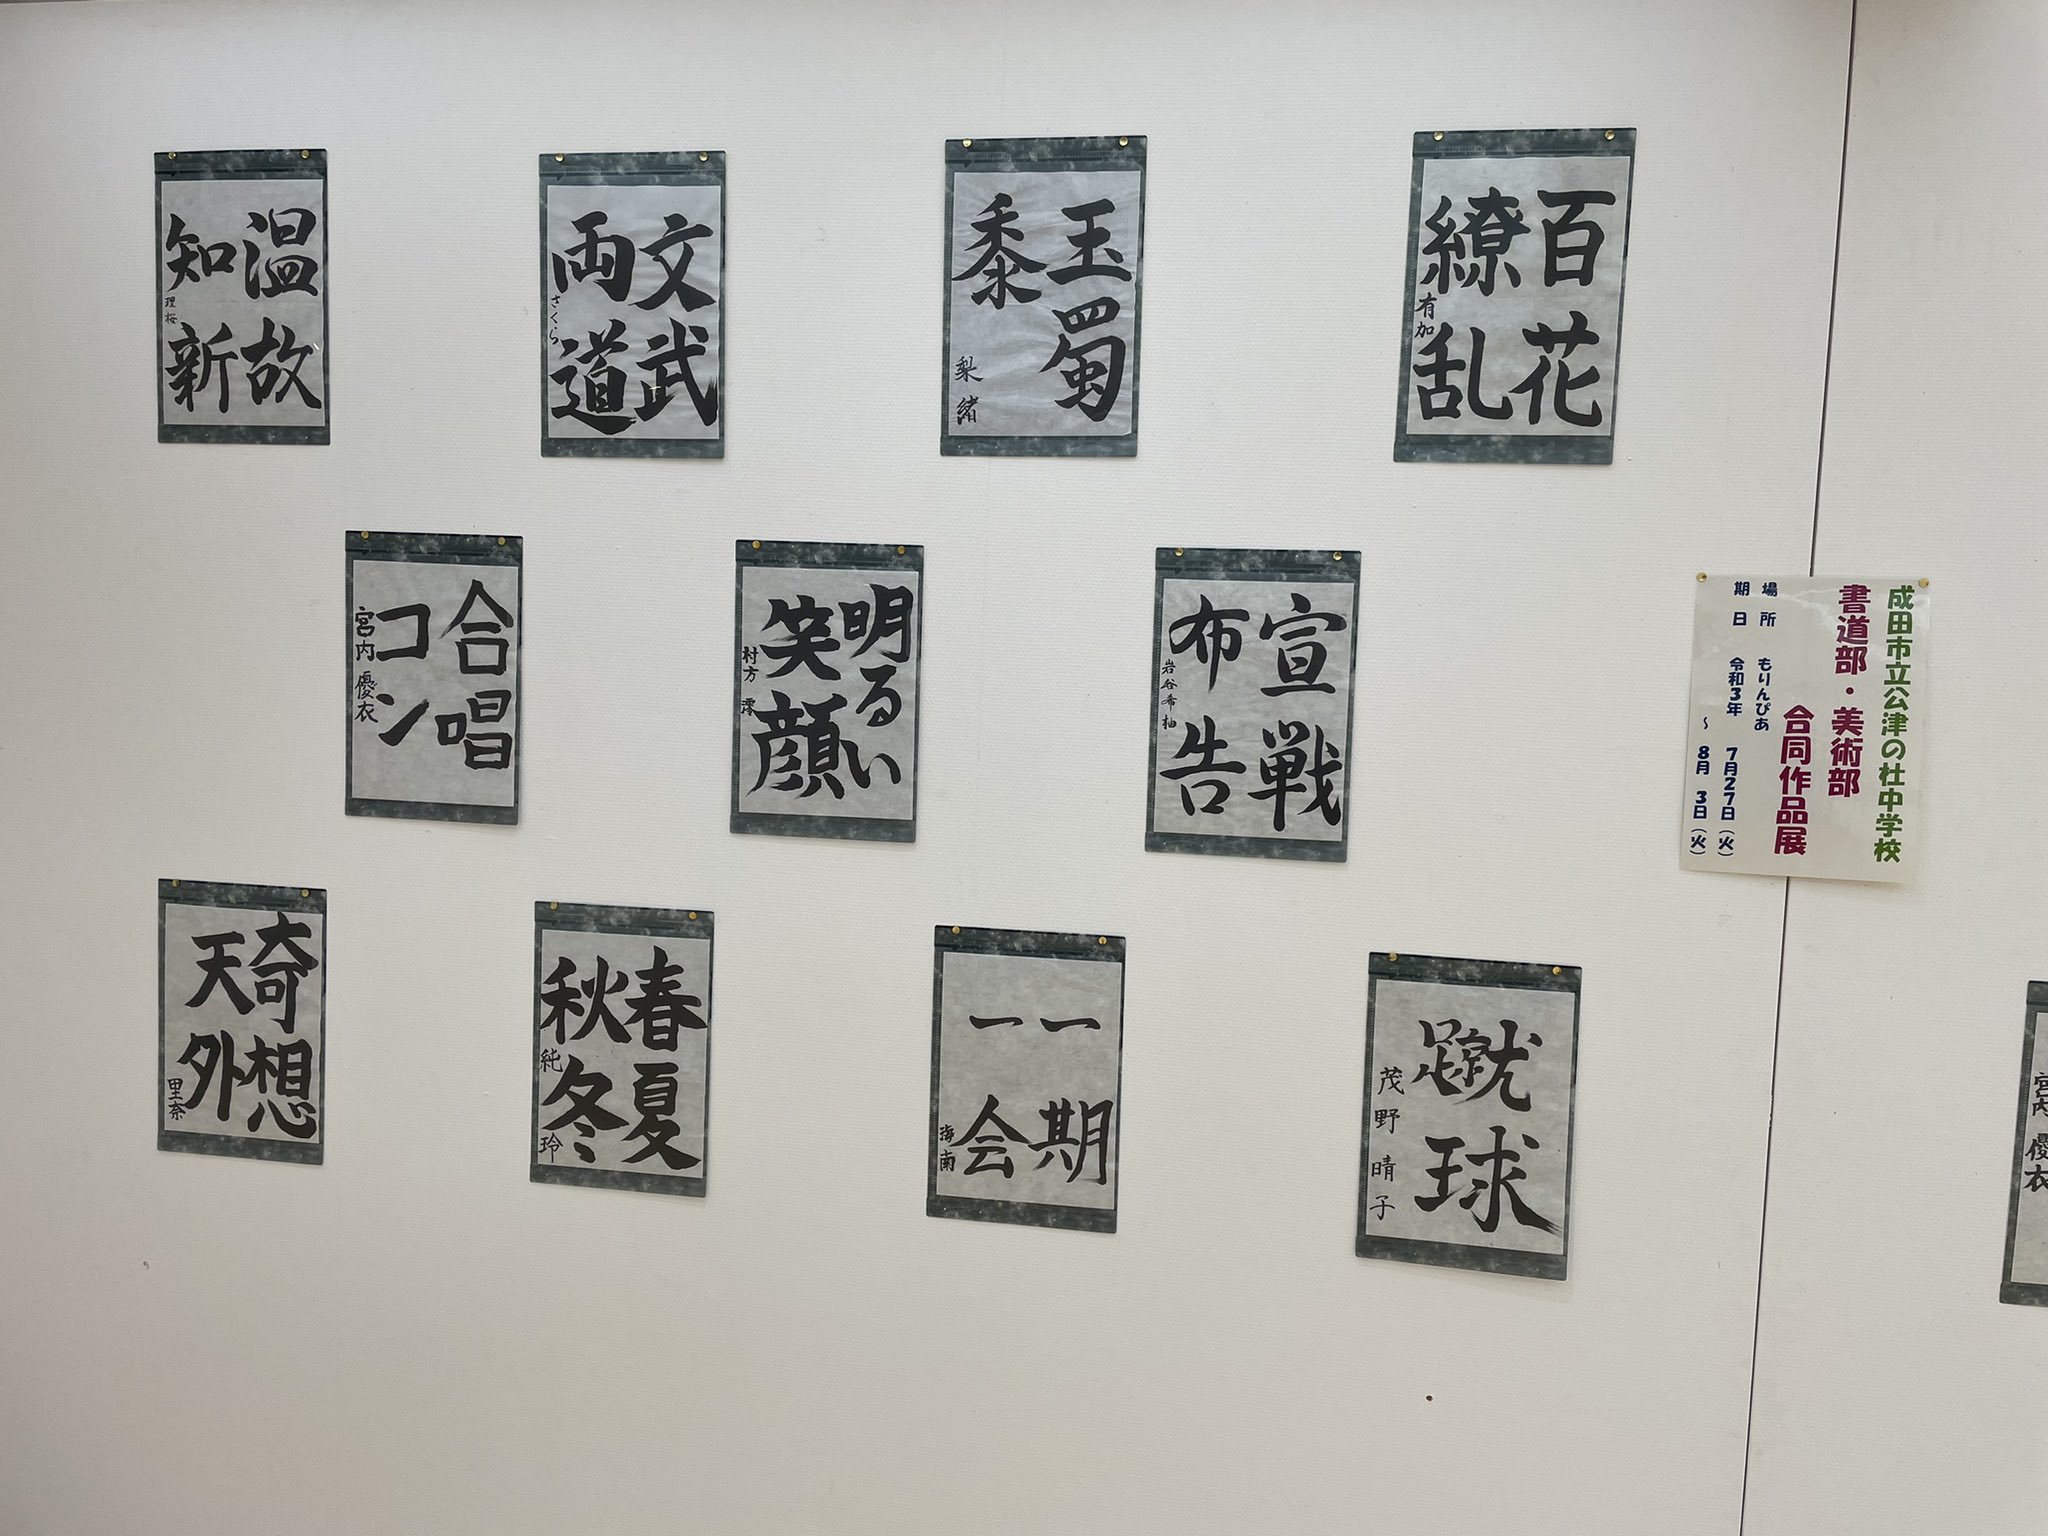 温故
知新
理桜
文武
両道
さくら
玉蜀
黍
梨緒
百花
繚乱
有加
合唱
コン
宮内優衣
明るい
笑顔
村方 澪
宣戦
布告
岩谷希柚
奇想
天外
里奈
春夏
秋冬
純玲
一期
一会
海南
蹴球
茂野晴子
成田市立公津の杜中学校
書道部・美術部
合同作品展
場所 もりんぴあ
期日 令和3年 7月27日(火)
~ 8月 3日(火)
宮内優衣